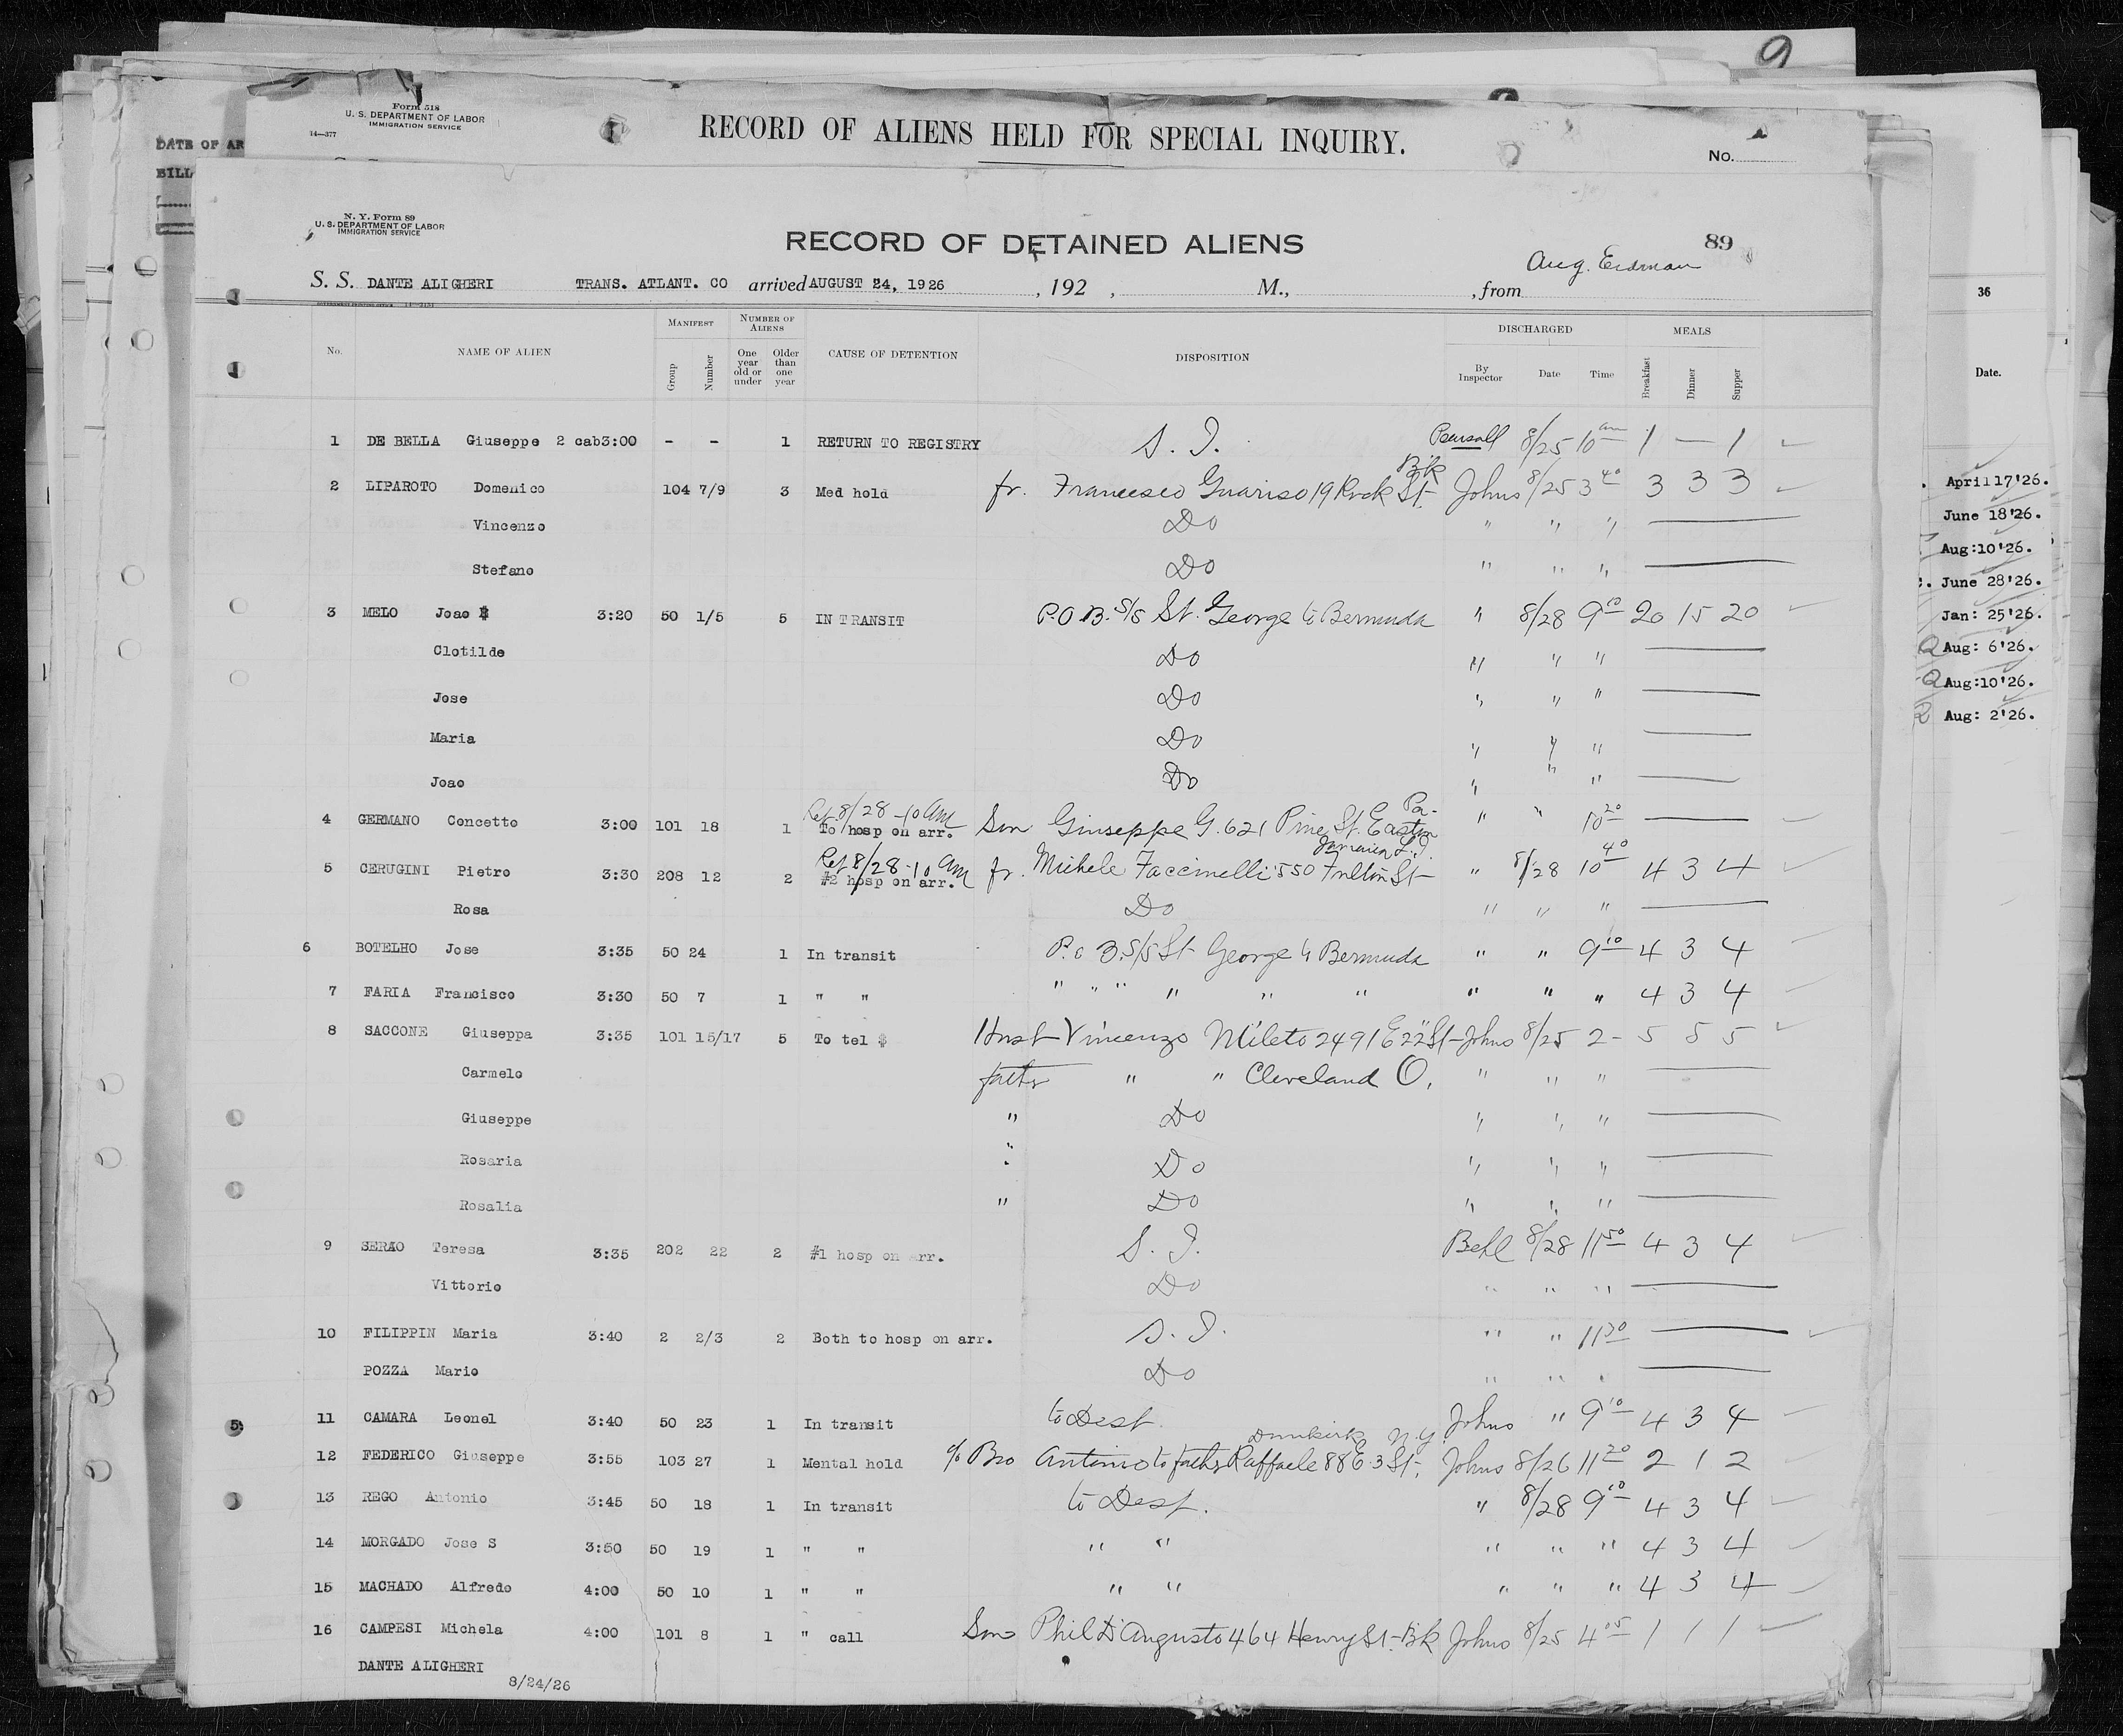 9
Form 518
U. S. DEPARTMENT OF LABOR
IMMIGRATION SERVICE
14—377
DATE OF AR
RECORD OF ALIENS HELD FOR SPECIAL INQUIRY.
No.
BILL
N. Y. Form 89
U. S. DEPARTMENT OF LABOR
IMMIGRATION SERVICE
RECORD OF DETAINED ALIENS
89
Aug. Erdman
S. S. DANTE ALIGHERI TRANS. ATLANT. CO arrived AUGUST 24, 1926 , 192 , M., , from
36
No. NAME OF ALIEN MANIFEST Group Number NUMBER OF ALIENS One year old or under Older than one year CAUSE OF DETENTION DISPOSITION DISCHARGED By Inspector Date Time MEALS Breakfast Dinner Supper
Date.
1 DE BELLA Giuseppe 2 cab3:00 - - 1 RETURN TO REGISTRY S. I. Pearsall 8/25 10 am 1 — 1
2 LIPAROTO Domenico 104 7/9 3 Med hold fr. Francesco Guariso 19 Rock St. Bk Johns 8/25 3 40 3 3 3
Vincenzo Do " " "
Stefano Do " " "
3 MELO Joao 3:20 50 1/5 5 IN TRANSIT P.O.B. S/S St. George to Bermuda " 8/28 9 10 20 15 20
Clotilde Do " " "
Jose Do " " "
Maria Do " " "
Joao Do " " "
4 GERMANO Concetto 3:00 101 18 1 Ret 8/28 - 10 am To hosp on arr. Son Giuseppe G. 621 Pine St. Easton Pa. " " 10 20
5 CERUGINI Pietro 3:30 208 12 2 Ret 8/28 - 10 am #2 hosp on arr. fr. Michele Faccinelli 550 Fulton St Jamaica L.I. " 8/28 10 40 4 3 4
Rosa Do " " "
6 BOTELHO Jose 3:35 50 24 1 In transit P.O.B. S/S St George to Bermuda " " 9 10 4 3 4
7 FARIA Francisco 3:30 50 7 1 " " " " " " " " " " " 4 3 4
8 SACCONE Giuseppa 3:35 101 15/17 5 To tel $ Husb Vincenzo Mileto 2491 E 22" St - Johns 8/25 2 - 5 5 5
Carmelo father " " Cleveland O. " " "
Giuseppe " Do " " "
Rosaria " Do " " "
Rosalia " Do " " "
9 SERAO Teresa 3:35 202 22 2 #1 hosp on arr. S. I. Behl 8/28 11 50 4 3 4
Vittorio Do " " "
10 FILIPPIN Maria 3:40 2 2/3 2 Both to hosp on arr. S. I. " " 11 30
POZZA Mario Do " " "
11 CAMARA Leonel 3:40 50 23 1 In transit to Dest. Johns " 9 10 4 3 4
12 FEDERICO Giuseppe 3:55 103 27 1 Mental hold c/o Bro Antonio to father Raffaele 88 E. 3 St. Dunkirk N.Y. Johns 8/26 11 20 2 1 2
13 REGO Antonio 3:45 50 18 1 In transit to Dest. " 8/28 9 10 4 3 4
14 MORGADO Jose S 3:50 50 19 1 " " " " " " " 4 3 4
15 MACHADO Alfredo 4:00 50 10 1 " " " " " " " 4 3 4
16 CAMPESI Michela 4:00 101 8 1 " call Son Phil D'Augusto 464 Henry St - Bk Johns 8/25 4 05 1 1 1
DANTE ALIGHERI
8/24/26
April 17'26.
June 18'26.
Aug:10'26.
June 28'26.
Jan: 25'26.
Aug: 6'26.
Aug:10'26.
Aug: 2'26.